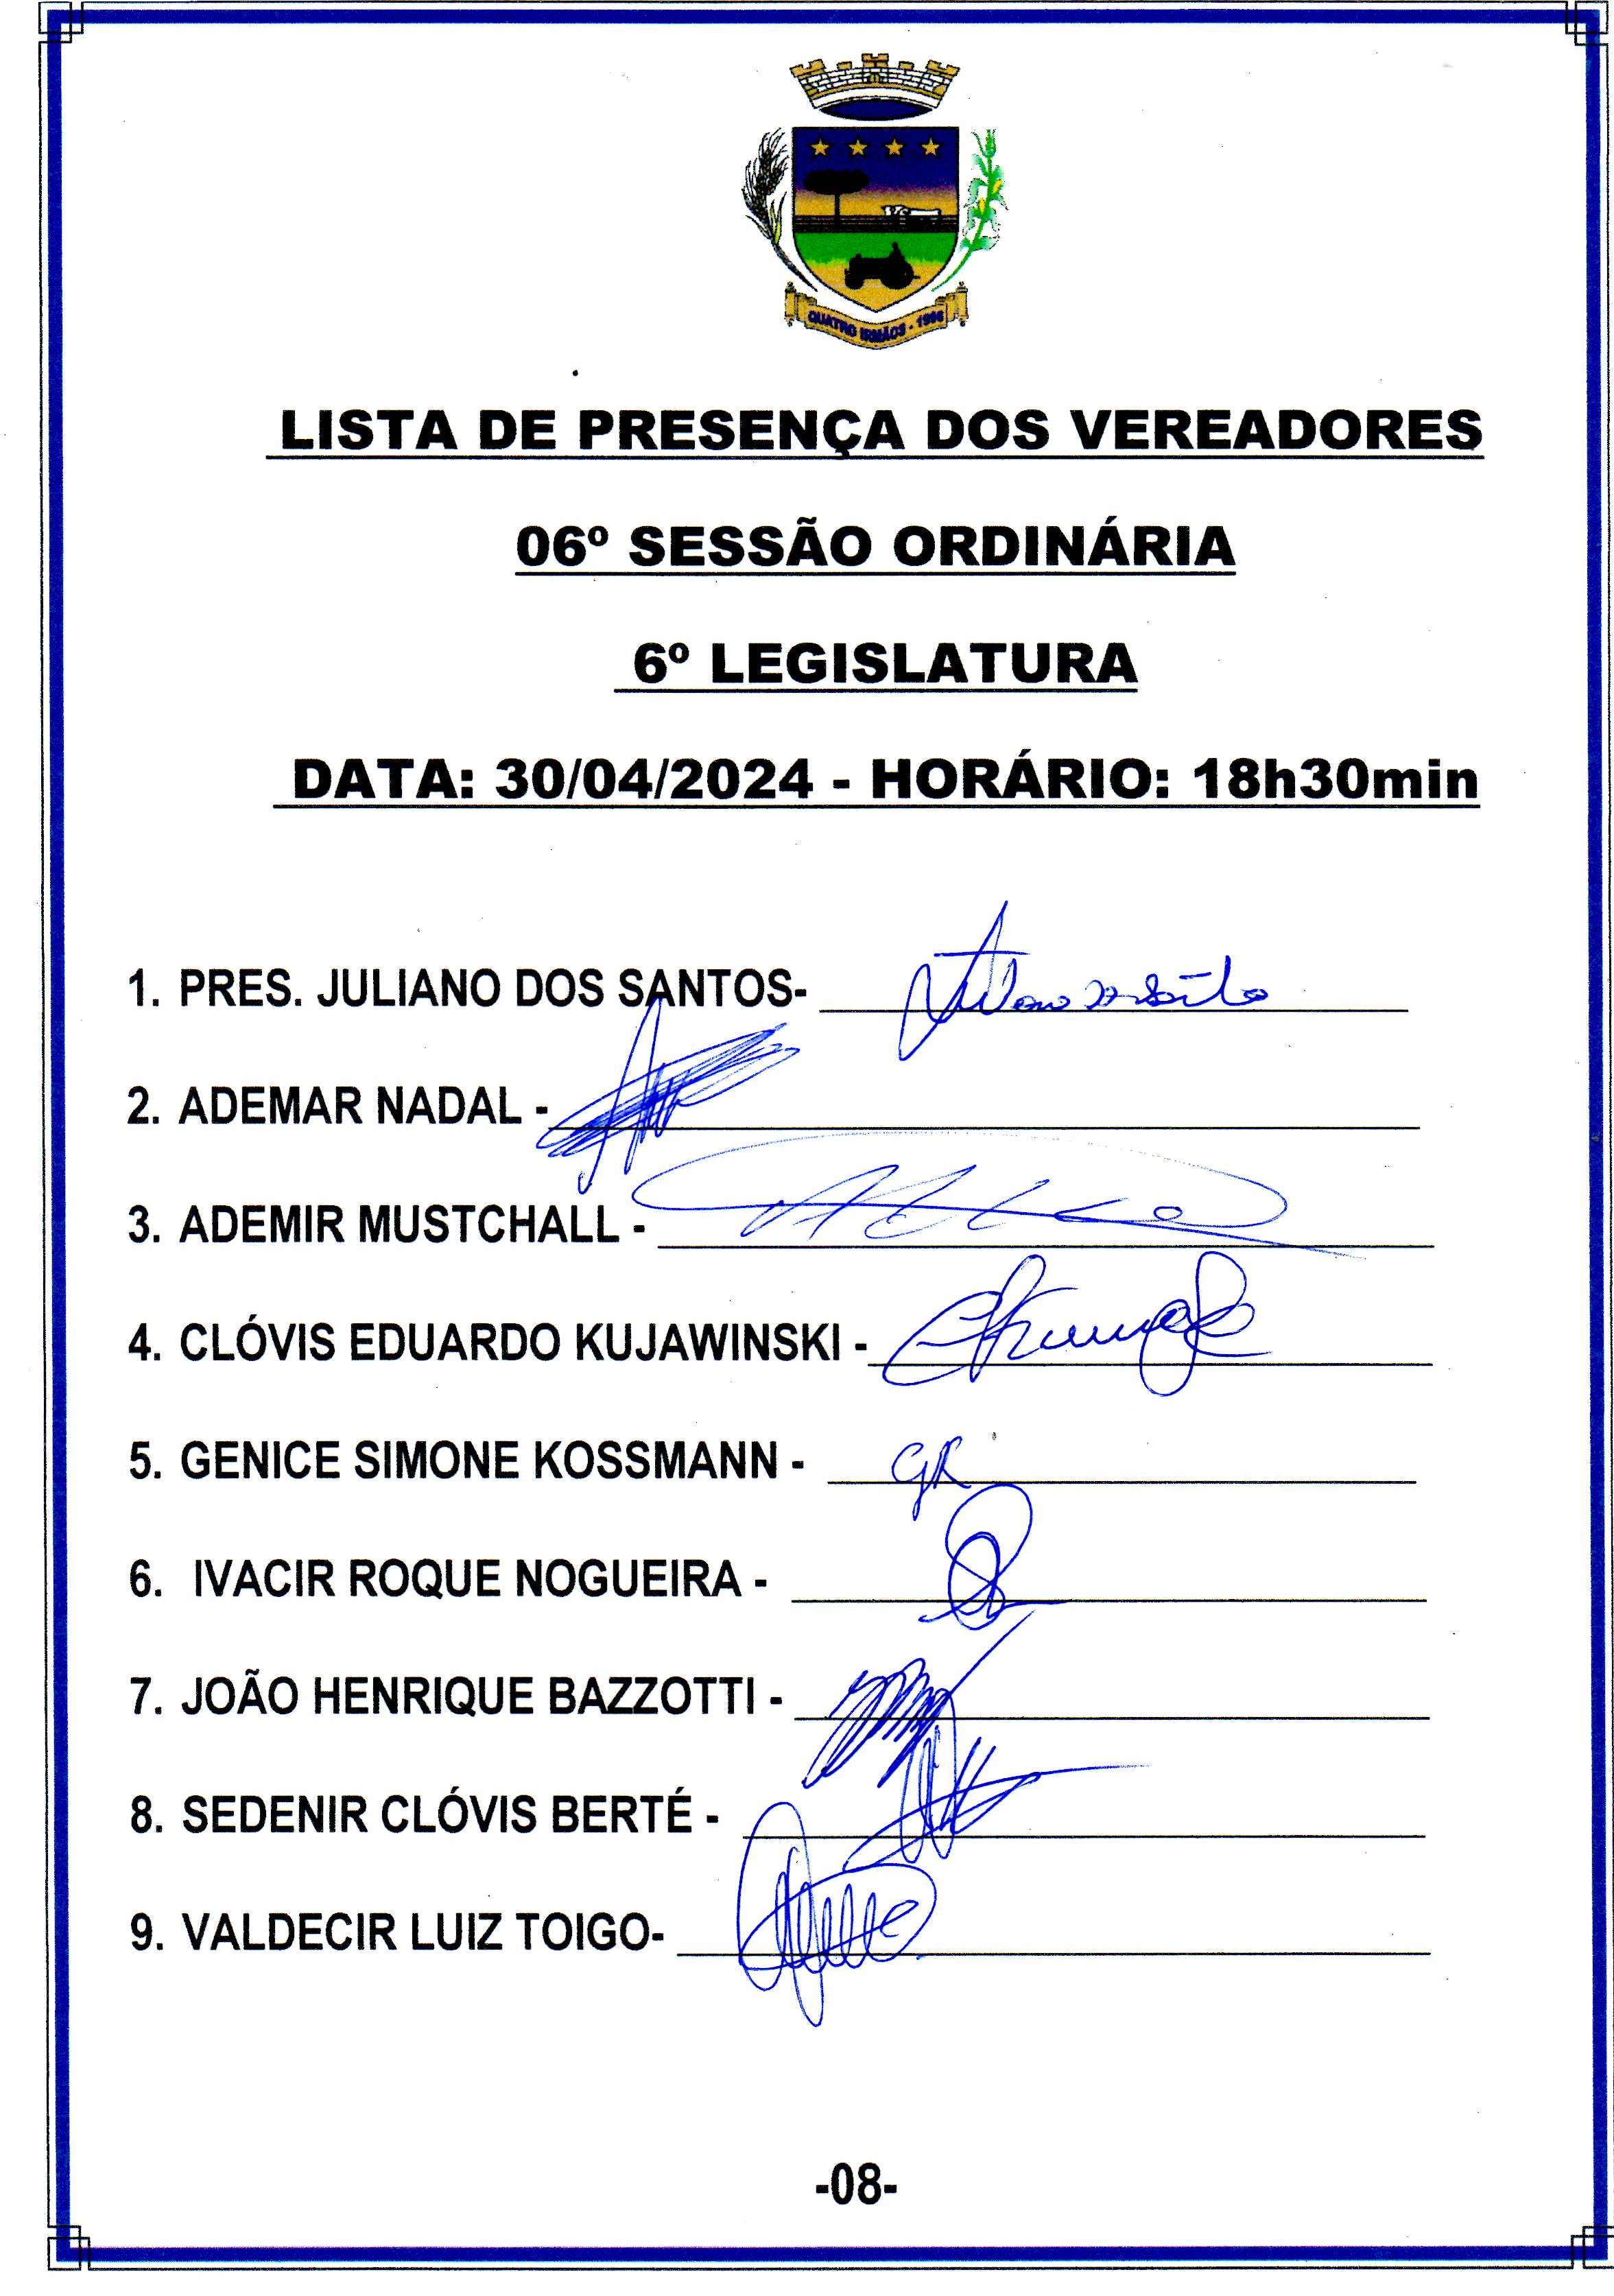 QUATRO IRMÃOS - 1996
LISTA DE PRESENÇA DOS VEREADORES
06º SESSÃO ORDINÁRIA
6º LEGISLATURA
DATA: 30/04/2024 - HORÁRIO: 18h30min
1. PRES. JULIANO DOS SANTOS-
2. ADEMAR NADAL -
3. ADEMIR MUSTCHALL -
4. CLÓVIS EDUARDO KUJAWINSKI -
5. GENICE SIMONE KOSSMANN - GK
6. IVACIR ROQUE NOGUEIRA -
7. JOÃO HENRIQUE BAZZOTTI -
8. SEDENIR CLÓVIS BERTÉ -
9. VALDECIR LUIZ TOIGO-
-08-